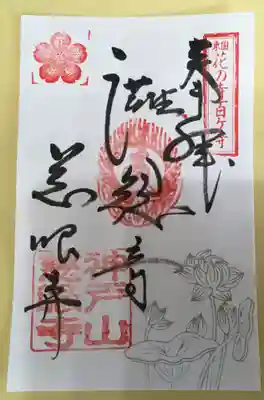 東国花の寺百ケ寺
奉拝
慈眼寺
神戸山
慈眼寺